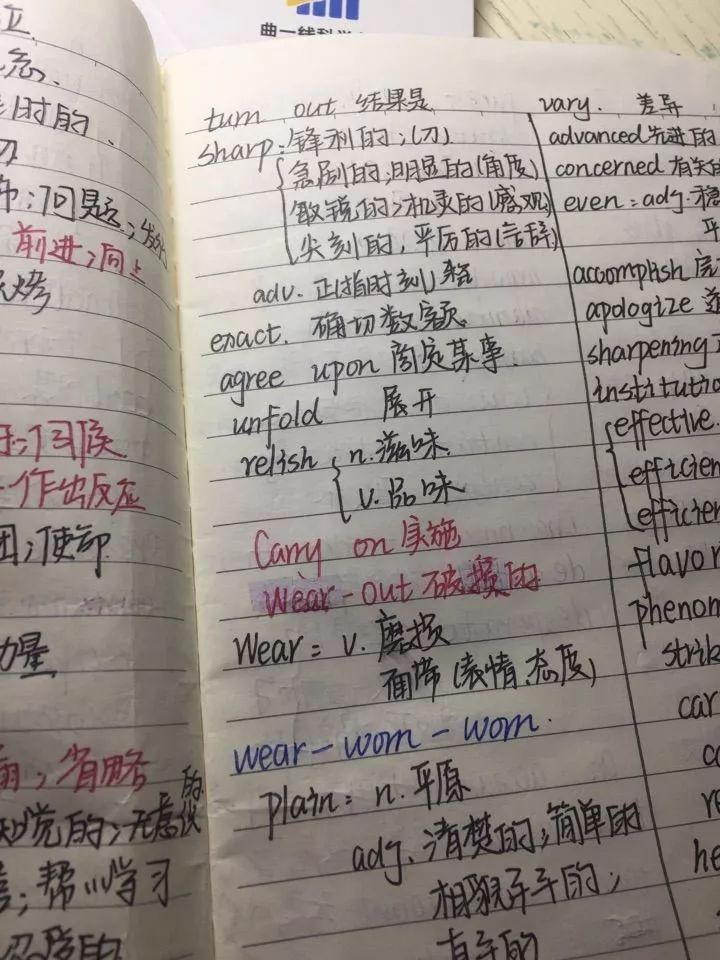 曲一线科学
时的
前进；向上
烤
回候
作出反应
力量
省略
的
觉的；无意识
帮心学习
turn out 结果是
sharp：锋利的；(刀)
急剧的；明显的(角度)
敏锐的；机灵的(感观)
尖刻的，严厉的(言辞)
adv. 正(指时刻)
exact. 确切数额
agree upon 商定某事.
unfold 展开
relish n.滋味
v.品味
Carry on 实施
Wear-out 破损的
Wear：v. 磨损
面带(表情、态度)
wear-worn-worn.
plain：n. 平原
adj. 清楚的；简单的
相貌平平的；
直率的
vary. 差异
advanced 先进的
concerned 有关的
even：adj. 稳
平
accomplish
apologize 道
sharpening
institutio
effective.
efficien
efficien
flavor
phenom
strik
car